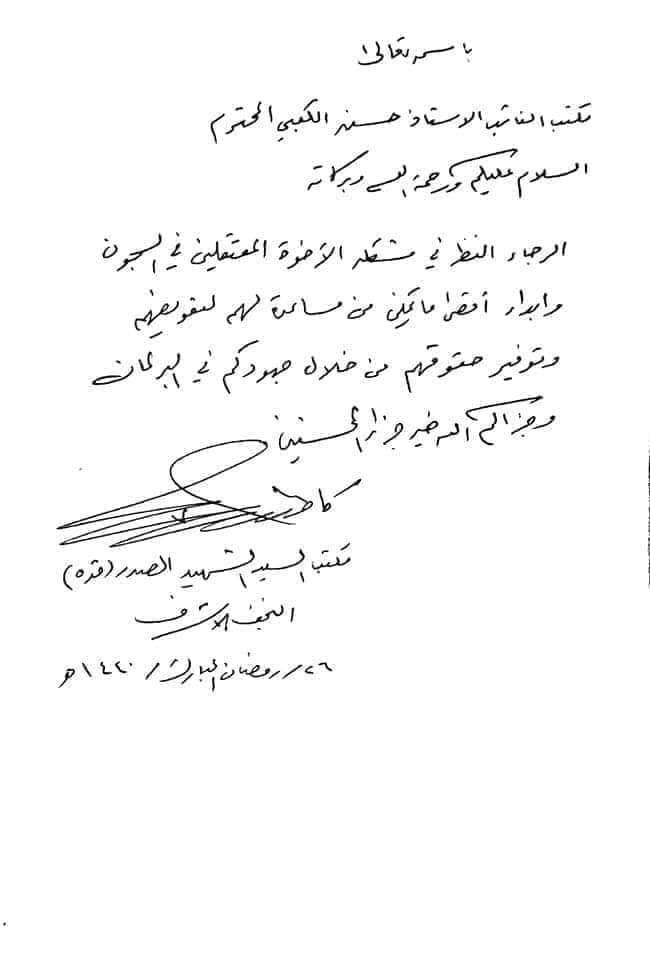 باسمه تعالى
مكتب النائب الاستاذ حسن الكعبي المحترم
السلام عليكم ورحمة الله وبركاته
الرجاء النظر في مشكلة الأخوة المعتقلين في السجون
وابداء أقصى ما يمكن من مساعدة لهم لتعويضهم
وتوفير حقوقهم من خلال جهودكم في البرلمان
وجزاكم الله خير جزاء المحسنين
مكتب السيد الشهيد الصدر (قده)
النجف الاشرف
٢٦/رمضان المبارك/ ١٤٤٠هـ